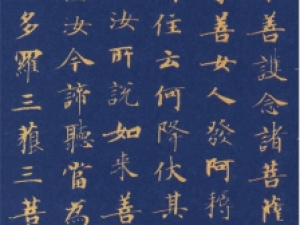 善護念諸菩薩
善女人發阿耨
多羅三藐三菩
住云何降伏其
汝所說如來善
汝今諦聽當為